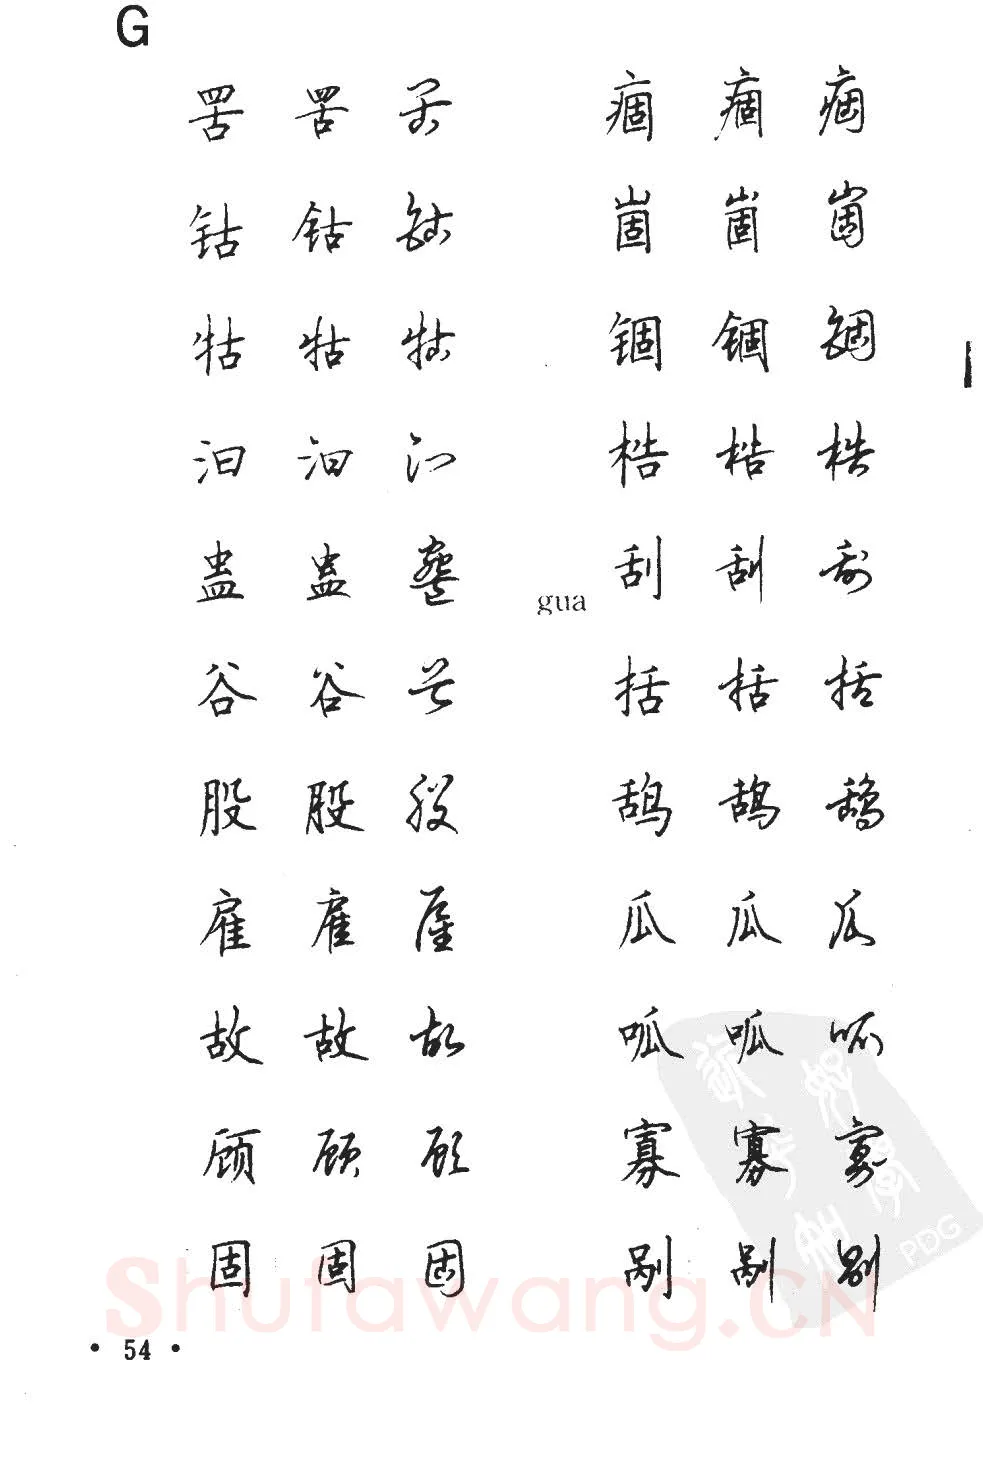 G
罟 罟 罟
钴 钴 钴
牯 牯 牯
汩 汩 汩
蛊 蛊 蠱
谷 谷 谷
股 股 股
雇 雇 雇
故 故 故
顾 顾 顾
固 固 固
痼 痼 痼
崮 崮 崮
锢 锢 锢
梏 梏 梏
gua
刮 刮 刮
括 括 括
鸹 鸹 鸹
瓜 瓜 瓜
呱 呱 呱
寡 寡 寡
剐 剐 剐
• 54 •
Shufawang.CN
PDG